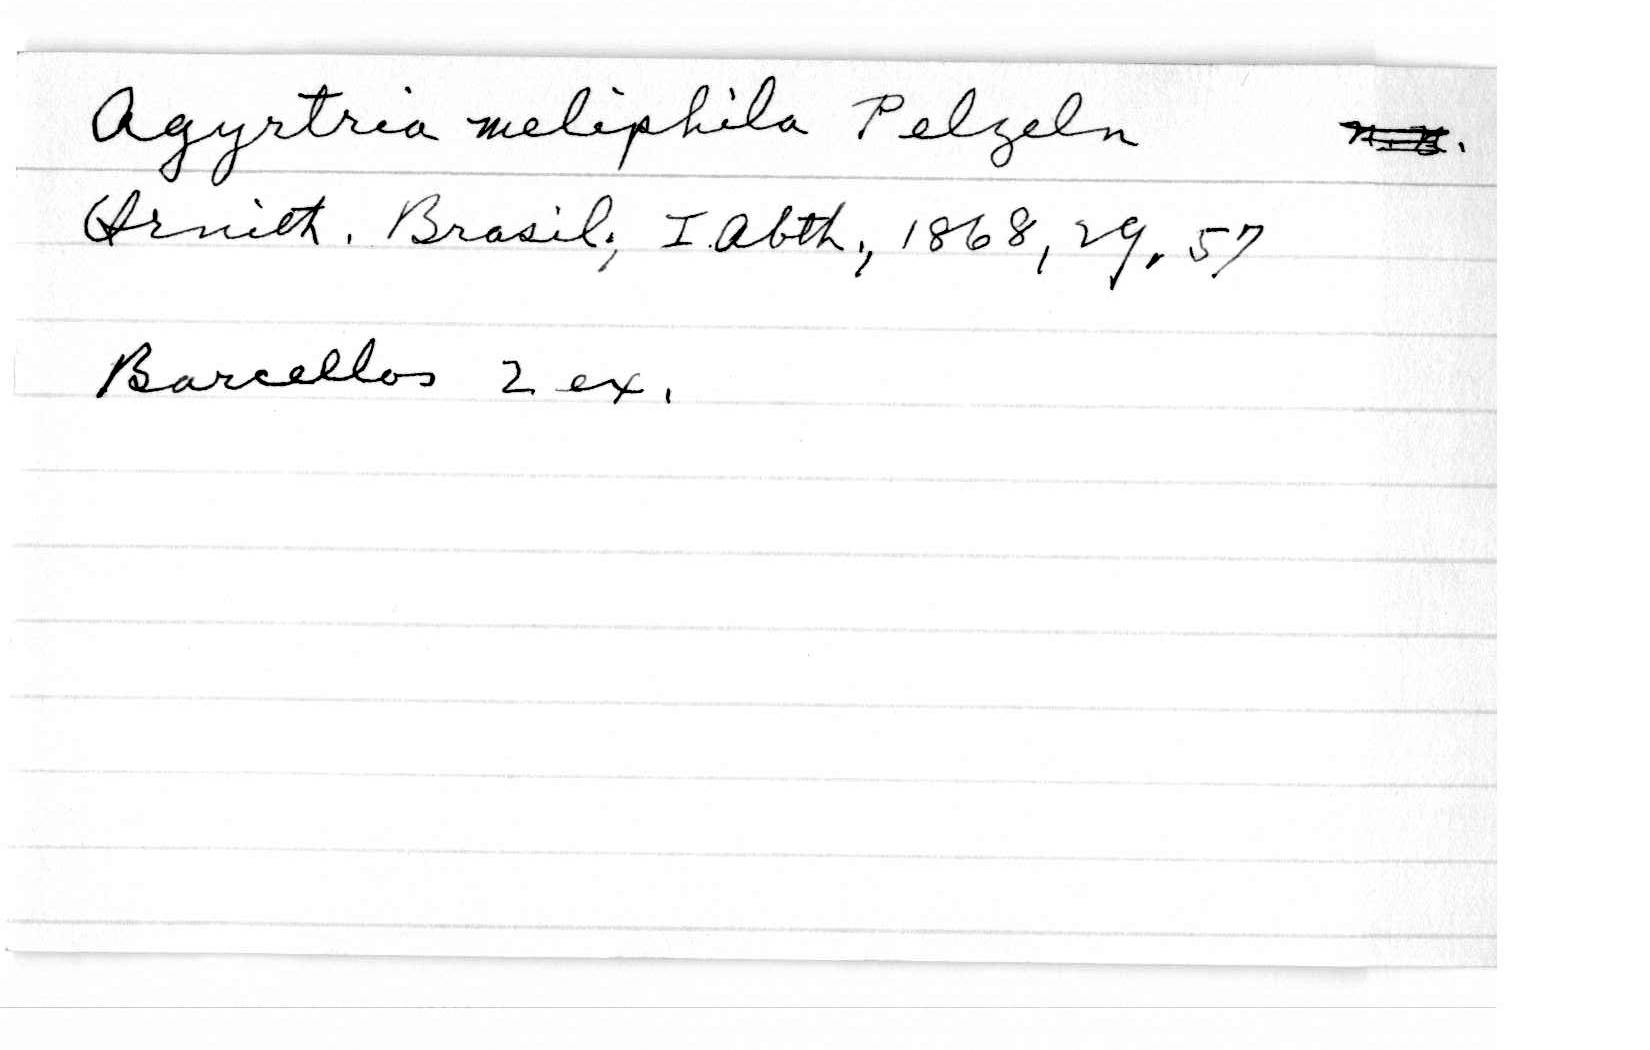 Agyrtria meliphila Pelzeln
Ornith. Brasil., I. Abth., 1868, 29, 57
Barcellos 2 ex.